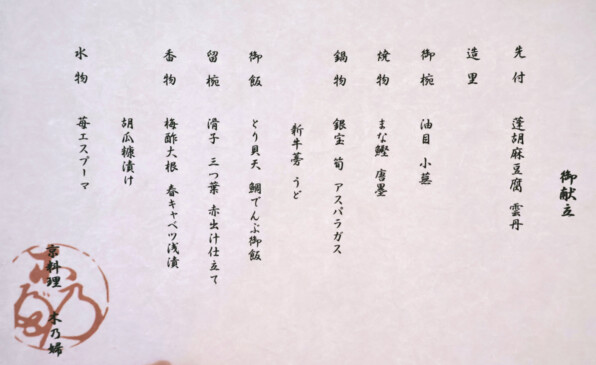 御献立
先付 蓬胡麻豆腐 雲丹
造里
御椀 油目 小蕪
焼物 まな鰹 唐墨
鍋物 銀宝 筍 アスパラガス
新牛蒡 うど
御飯 とり貝天 鯛でんぶ御飯
留椀 滑子 三つ葉 赤出汁仕立て
香物 梅酢大根 春キャベツ浅漬
胡瓜糠漬け
水物 苺エスプーマ
京料理 木乃婦